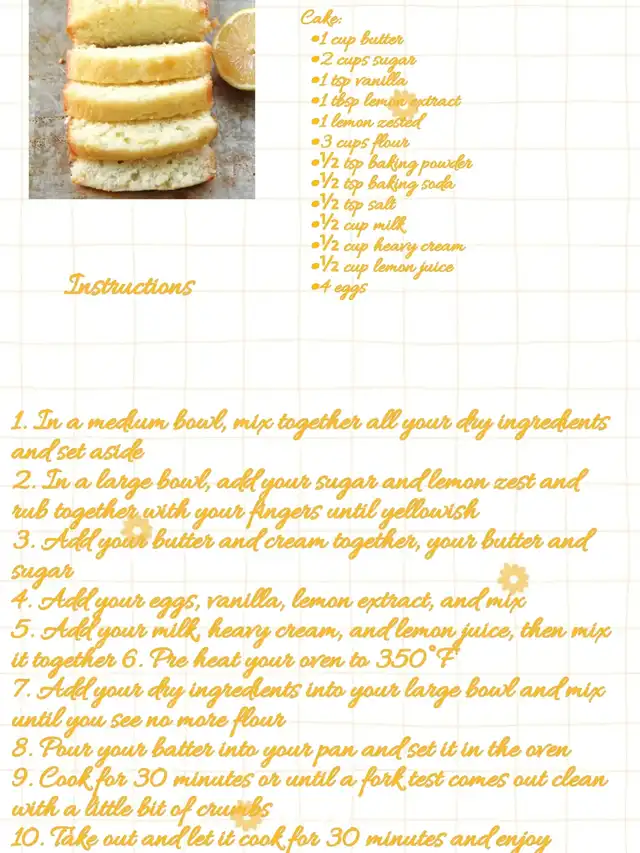 Cake:
•1 cup butter
•2 cups sugar
•1 tsp vanilla
•1 tbsp lemon extract
•1 lemon zested
•3 cups flour
•½ tsp baking powder
•½ tsp baking soda
•½ tsp salt
•½ cup milk
•½ cup heavy cream
•½ cup lemon juice
•4 eggs
Instructions
1. In a medium bowl, mix together all your dry ingredients
and set aside
2. In a large bowl, add your sugar and lemon zest and
rub together with your fingers until yellowish
3. Add your butter and cream together, your butter and
sugar
4. Add your eggs, vanilla, lemon extract, and mix
5. Add your milk, heavy cream, and lemon juice, then mix
it together 6. Pre heat your oven to 350°F
7. Add your dry ingredients into your large bowl and mix
until you see no more flour
8. Pour your batter into your pan and set it in the oven
9. Cook for 30 minutes or until a fork test comes out clean
with a little bit of crumbs
10. Take out and let it cook for 30 minutes and enjoy